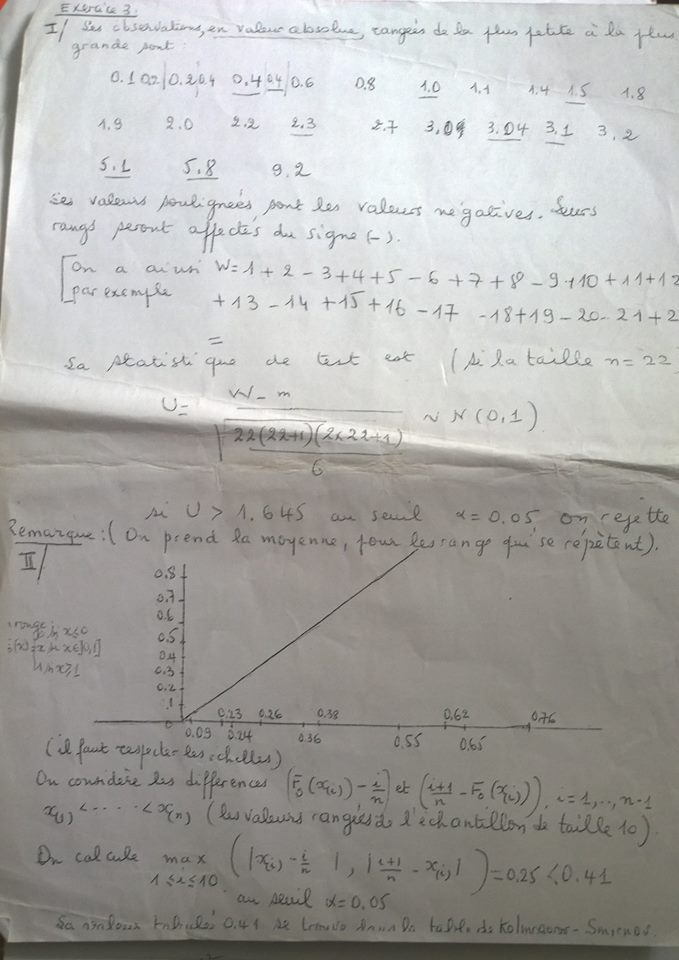 Exercice 3:
I/ Les observations, en valeur absolue, rangées de la plus petite à la plus
grande sont :
0.1 0.2 | 0.2 0.4 | 0.4 0.4 | 0.6 0.8 1.0 1.1 1.4 1.5 1.8
1.9 2.0 2.2 2.3 2.7 3.01 3.04 3.1 3.2
5.1 5.8 9.2
Les valeurs soulignées sont les valeurs négatives. Leurs
rangs seront affectés du signe (-).
On a ainsi W = 1 + 2 - 3 + 4 + 5 - 6 + 7 + 8 - 9 + 10 + 11 + 12
par exemple + 13 - 14 + 15 + 16 - 17 - 18 + 19 - 20 - 21 + 2
=
La statistique de test est (si la taille n = 22
U = W - m / √ 22(22+1)(2x22+1) / 6 ~ N(0,1)
si U > 1.645 au seuil α = 0.05 on rejette
Remarque : (On prend la moyenne, pour les rangs qui se répètent).
II/
0.8
0.7
0.6
0.5
0.4
0.3
0.2
.1
0
0 si x ≤ 0
x si x ∈ ]0,1[
1 si x ≥ 1
0.23 0.26 0.38 0.62 0.76
0.09 0.24 0.36 0.55 0.65
(il faut respecter les échelles)
On considère les différences (F₀(x(i)) - i/n) et (i+1/n - F₀(x(i))), i = 1,..., n-1
x(1) < ---- < x(n) (les valeurs rangées de l'échantillon de taille 10).
On calcule max 1≤i≤10 (|x(i) - i/n|, |i+1/n - x(i)|) = 0.25 < 0.41
au seuil α = 0.05
La valeur tabulée 0.41 se trouve dans la table de Kolmogorov - Smirnov.